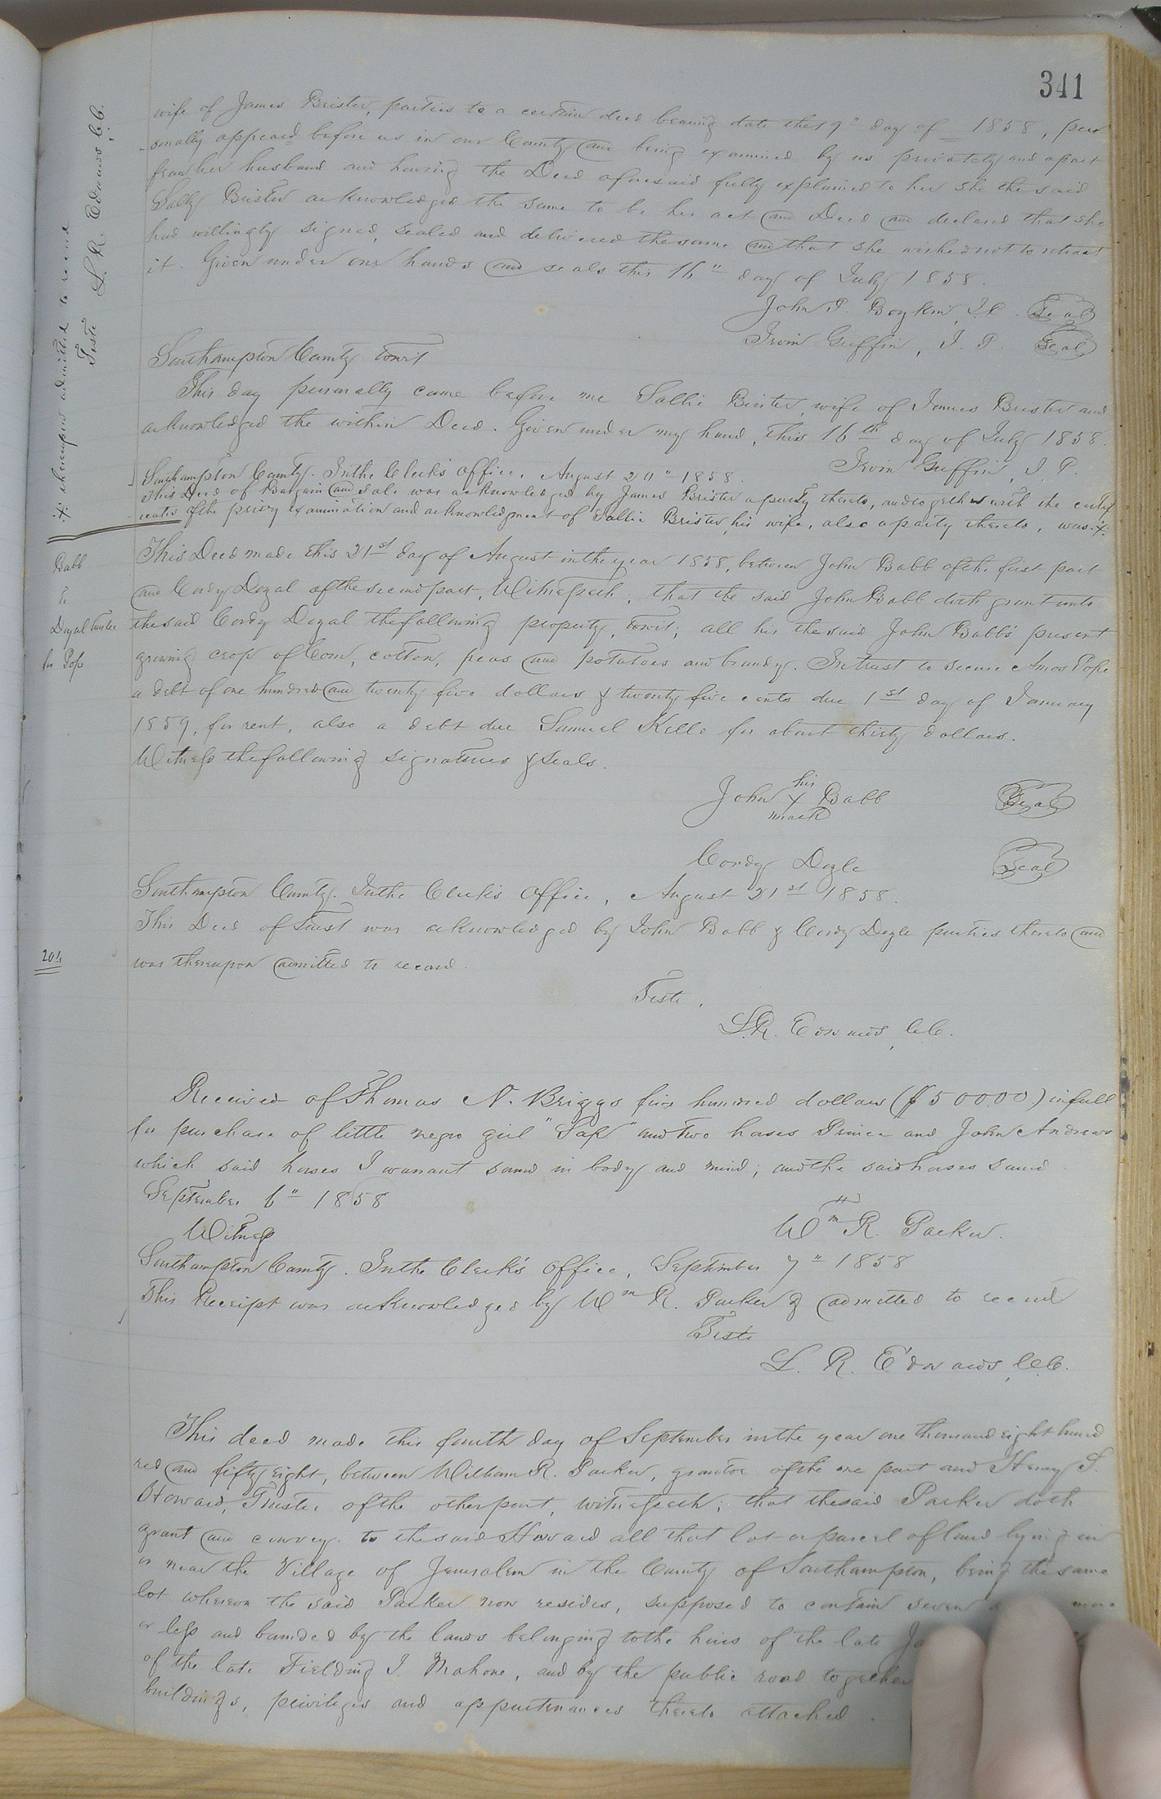 341
wife of James Brister, parties to a certain deed bearing date the 9" day of 1858, per
sonally appeared before us in our County and being examined by us privately and apart
from her husband and having the Deed aforesaid fully explained to her she the said
Sally Brister acknowledged the same to be her act and Deed and declared that she
had willingly signed, sealed and delivered the same and that she wished not to retract
it. Given under our hands and seals this 16" day of July 1858.
John P. Boykin, J.P. Seal
Irvin Griffin, J. P. Seal
Southampton County towit
This day personally came before me Sallie Brister, wife of James Brister and
acknowledged the within Deed. Given under my hand, this 16th day of July 1858.
Irvin Griffin, J. P.
Southampton County. In the Clerk's Office, August 20" 1858.
This Deed of Bargain and Sale was acknowledged by James Brister a party thereto, and together with the certif
icates of the privy examination and acknowledgment of Sallie Brister, his wife, also a party thereto, was :x:
:x: thereupon admitted to record
Teste S. R. Edwards C.C.
Babb
to
Dozal Trustee
for Pope
This Deed made this 21st day of August in the year 1858, between John Babb of the first part
and Cordy Dozal of the second part, Witnesseth, that the said John Babb doth grant unto
the said Cordy Dozal the following property, towit; all his the said John Babb's present
growing crop of Corn, cotton, peas and potatoes and brandy. In trust to secure Amos Pope
a debt of one hundred and twenty five dollars & twenty five cents due 1st day of January
1859, for rent, also a debt due Samuel Kello for about thirty dollars.
Witness the following signatures & seals.
John his x mark Babb Seal
Cordy Dozle Seal
Southampton County. In the Clerk's Office, August 21st 1858.
This Deed of Trust was acknowledged by John Babb & Cordy Dozle parties thereto and
was thereupon admitted to record.
Teste,
L.R. Edwards, C.C.
Received of Thomas N. Briggs five hundred dollars ($500.00) in full
for purchase of little negro girl "Sap" and two horses Prince and John Andrews
which said horses I warrant sound in body and mind; and the said horses sound
September 6" 1858
Witness
Wm R. Parker.
Southampton County. In the Clerk's Office, September 7" 1858
This Receipt was acknowledged by Wm R. Parker & admitted to record
Teste
L. R. Edwards, C.C.
This deed made this fourth day of September in the year one thousand eight hund
red and fifty eight, between William R. Parker, grantor of the one part and Henry S.
Howard, Trustee of the other part, witnesseth; that the said Parker doth
grant and convey to the said Howard all that lot or parcel of land lying in
or near the Village of Jerusalem in the County of Southampton, being the same
lot whereon the said Parker now resides, supposed to contain seven more
or less and bounded by the lands belonging to the heirs of the late
of the late Fielding J. Mahone, and by the public road together
buildings, privileges and appurtenances thereto attached.